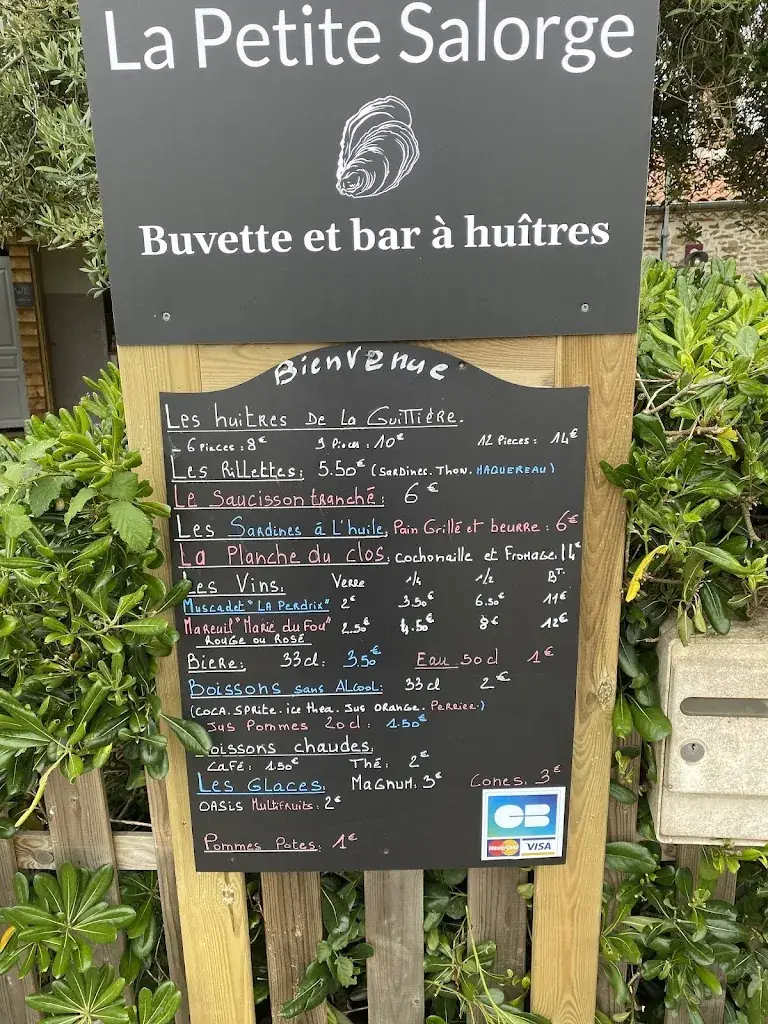 La Petite Salorge
Buvette et bar à huîtres
Bienvenue
Les huitres De La Guittière.
6 Pieces : 8€ 9 Pieces : 10€ 12 Pieces : 14€
Les Rillettes: 5.50€ (Sardines. Thon. MAQUEREAU)
Le Saucisson tranché: 6€
Les Sardines à L'huile, Pain Grillé et beurre : 6€
La Planche du clos: cochonaille et Fromage. 14€
Les Vins. Verre 1/4 1/2 BT.
Muscadet "LA Perdrix" 2€ 3.50€ 6.50€ 11€
Mareuil "Marie du Fou" 2.50€ 4.50€ 8€ 12€
Rouge ou Rosé
Biere: 33cl: 3.50€ Eau 50cl 1€
Boissons sans Alcool: 33cl 2€
(COCA. SPRite. ice thea. Jus ORANGE. Perrier.)
Jus Pommes 20cl: 1.50€
Boissons chaudes.
Café: 1.50€ Thé: 2€
Les Glaces. Magnum: 3€ Cones. 3€
OASIS Multifruits: 2€
Pommes Potes: 1€
CB
MasterCard VISA